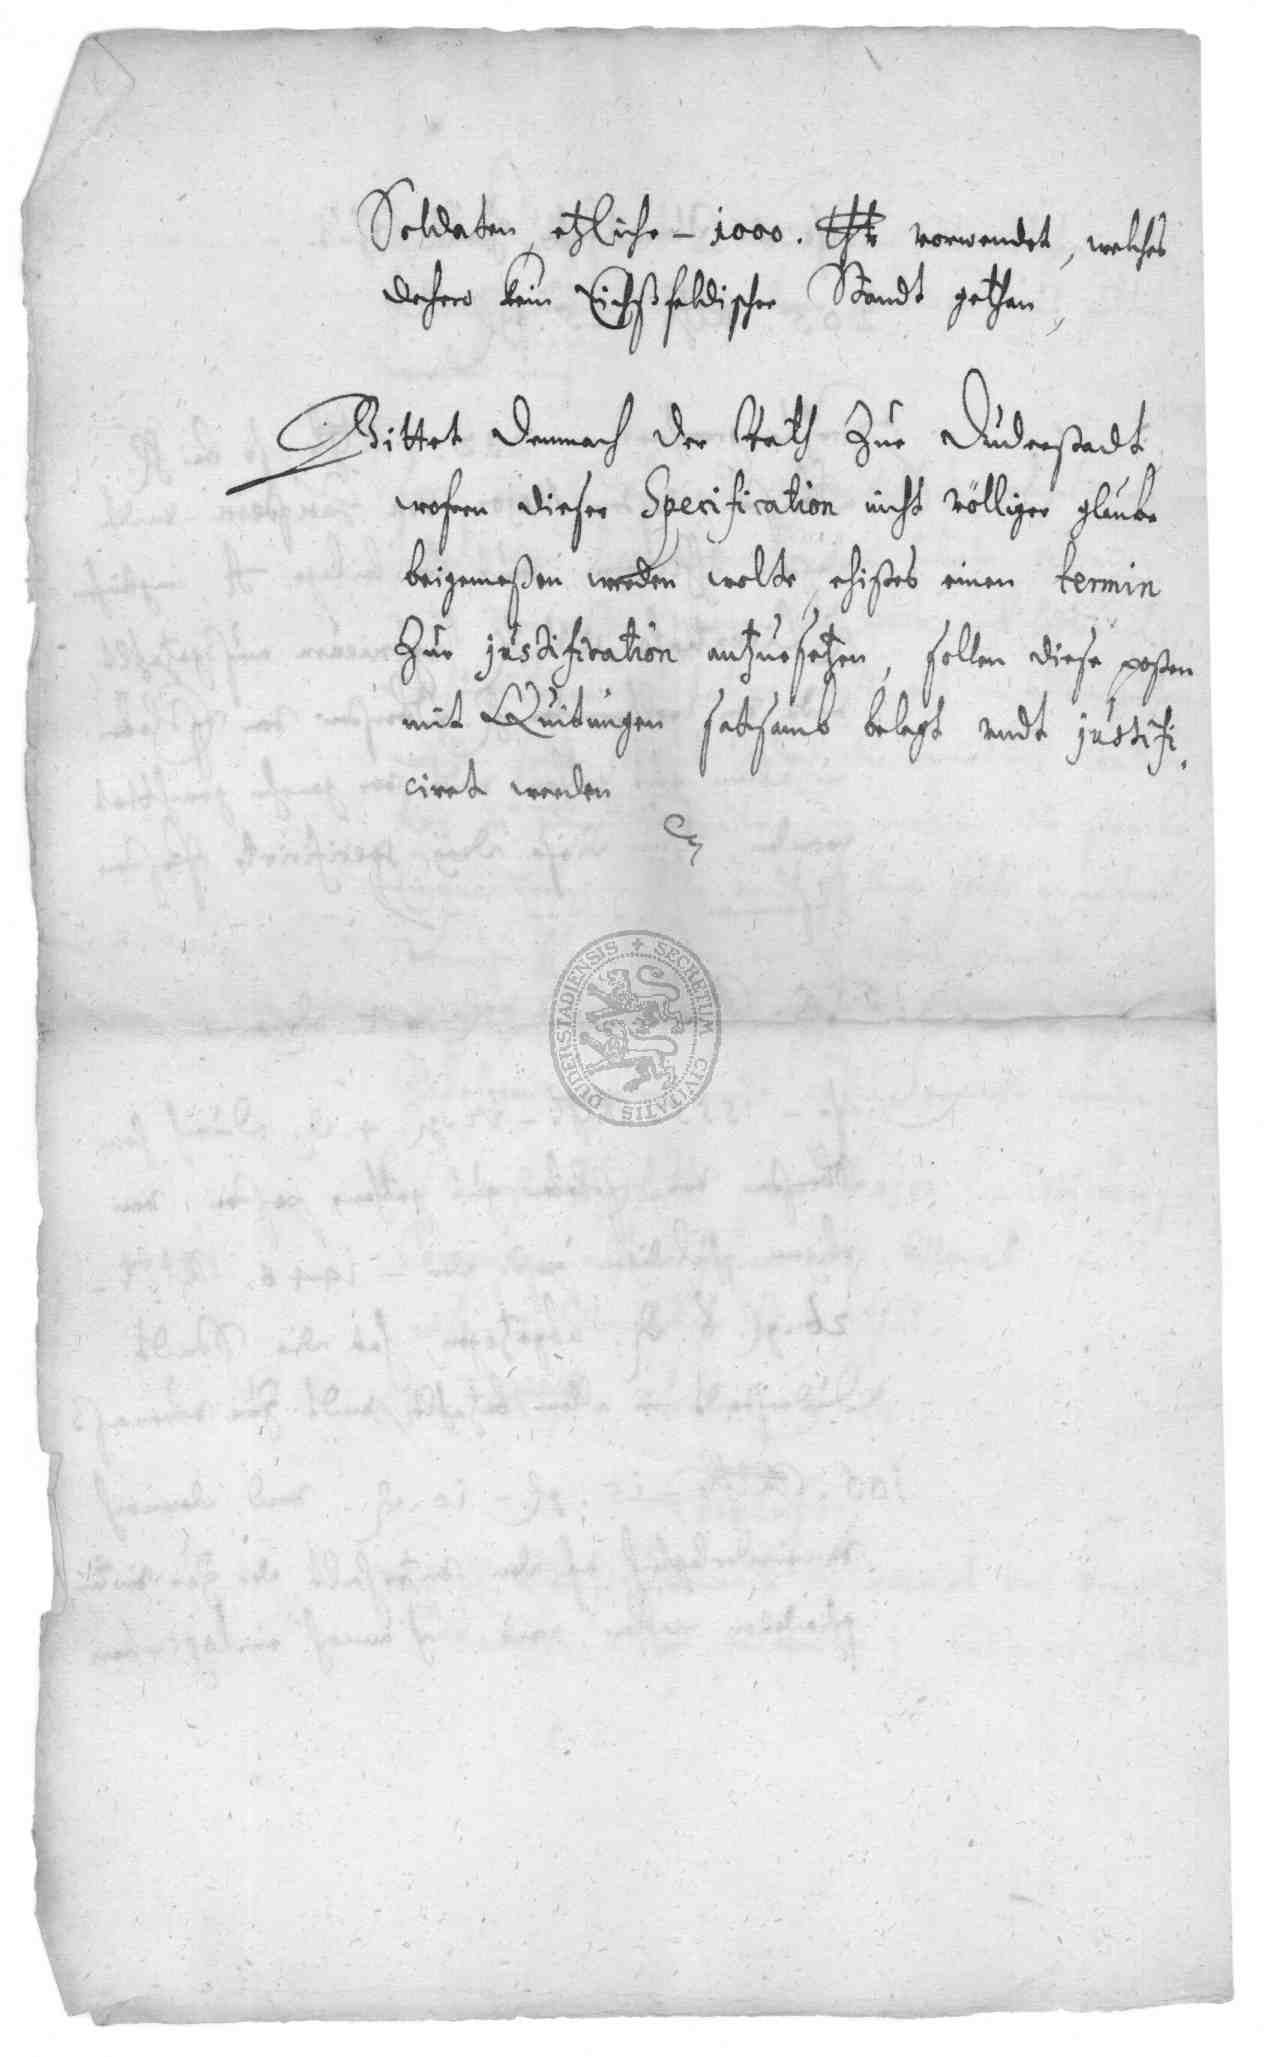 Soldaten etzliche - 1000. Rthlr vorwendet, welches
dehero kein Eichßfeldischer Standt gethan,
Bittet demnach der Rath Zur Duderstadt
wofern dieser Specification nicht völliger glaube
beigemeßen werden wolte, ehistes einen termin
Zur justification antzusetzen, sollen diese posten
mit Quitungen satsamb belegt undt justifi-
ciret werden
SECRETUM CIVITATIS DUDERSTADIENSIS